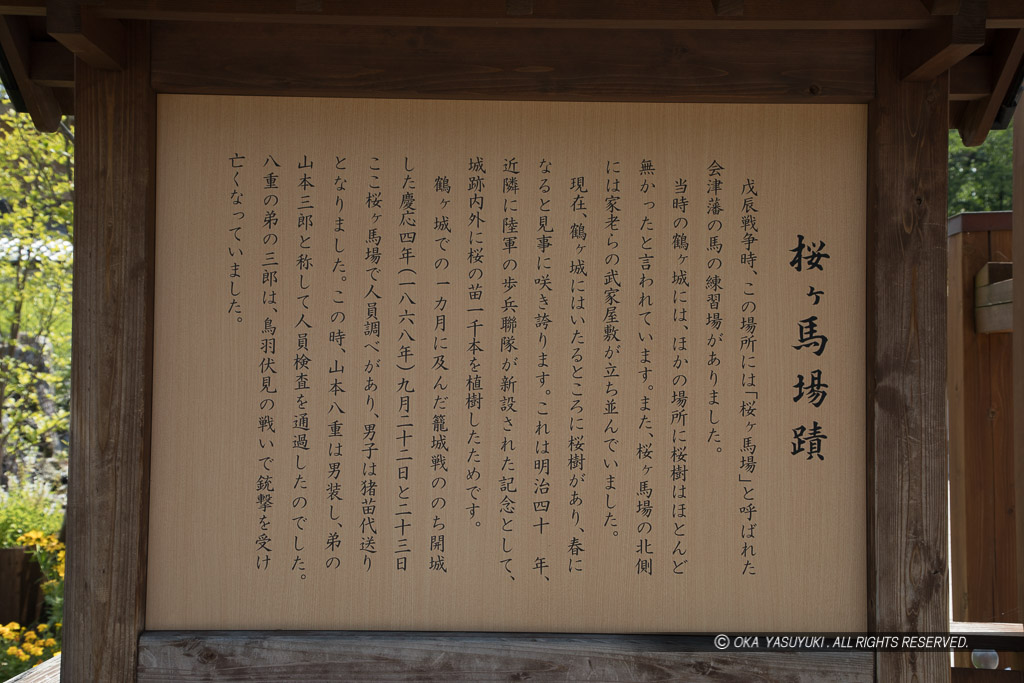 桜ヶ馬場蹟
戊辰戦争時、この場所には「桜ヶ馬場」と呼ばれた
会津藩の馬の練習場がありました。
当時の鶴ヶ城には、ほかの場所に桜樹はほとんど
無かったと言われています。また、桜ヶ馬場の北側
には家老らの武家屋敷が立ち並んでいました。
現在、鶴ヶ城にはいたるところに桜樹があり、春に
なると見事に咲き誇ります。これは明治四十　年、
近隣に陸軍の歩兵聯隊が新設された記念として、
城跡内外に桜の苗一千本を植樹したためです。
鶴ヶ城での一カ月に及んだ籠城戦ののち開城
した慶応四年(一八六八年)九月二十二日と二十三日
ここ桜ヶ馬場で人員調べがあり、男子は猪苗代送り
となりました。この時、山本八重は男装し、弟の
山本三郎と称して人員検査を通過したのでした。
八重の弟の三郎は、鳥羽伏見の戦いで銃撃を受け
亡くなっていました。
© OKA YASUYUKI. ALL RIGHTS RESERVED.